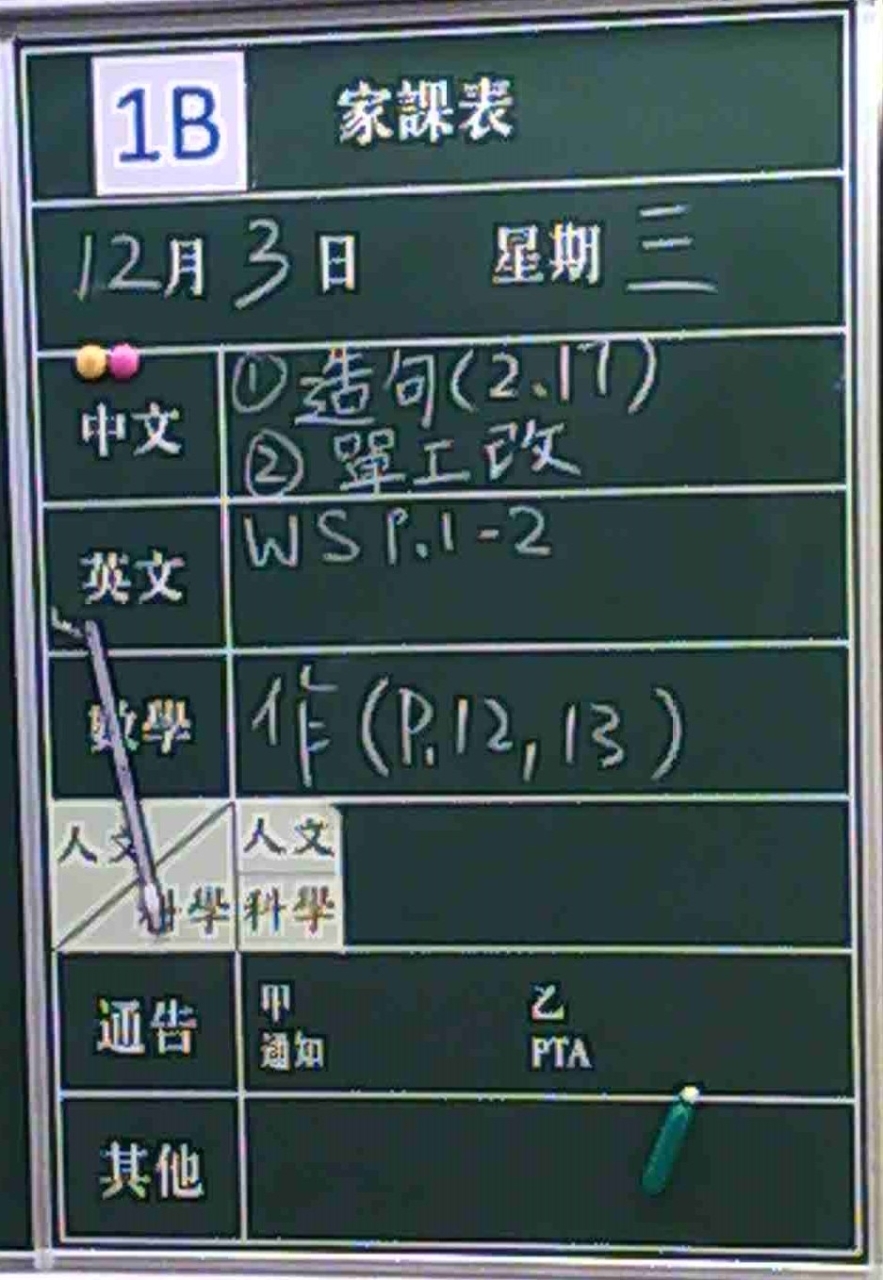 1B 家課表
12月3日 星期三
中文 ①造句(2.17)
②單工改
英文 WS P.1-2
數學 作(P.12,13)
人文 人文
科學 科學
通告 甲 乙
通知 PTA
其他